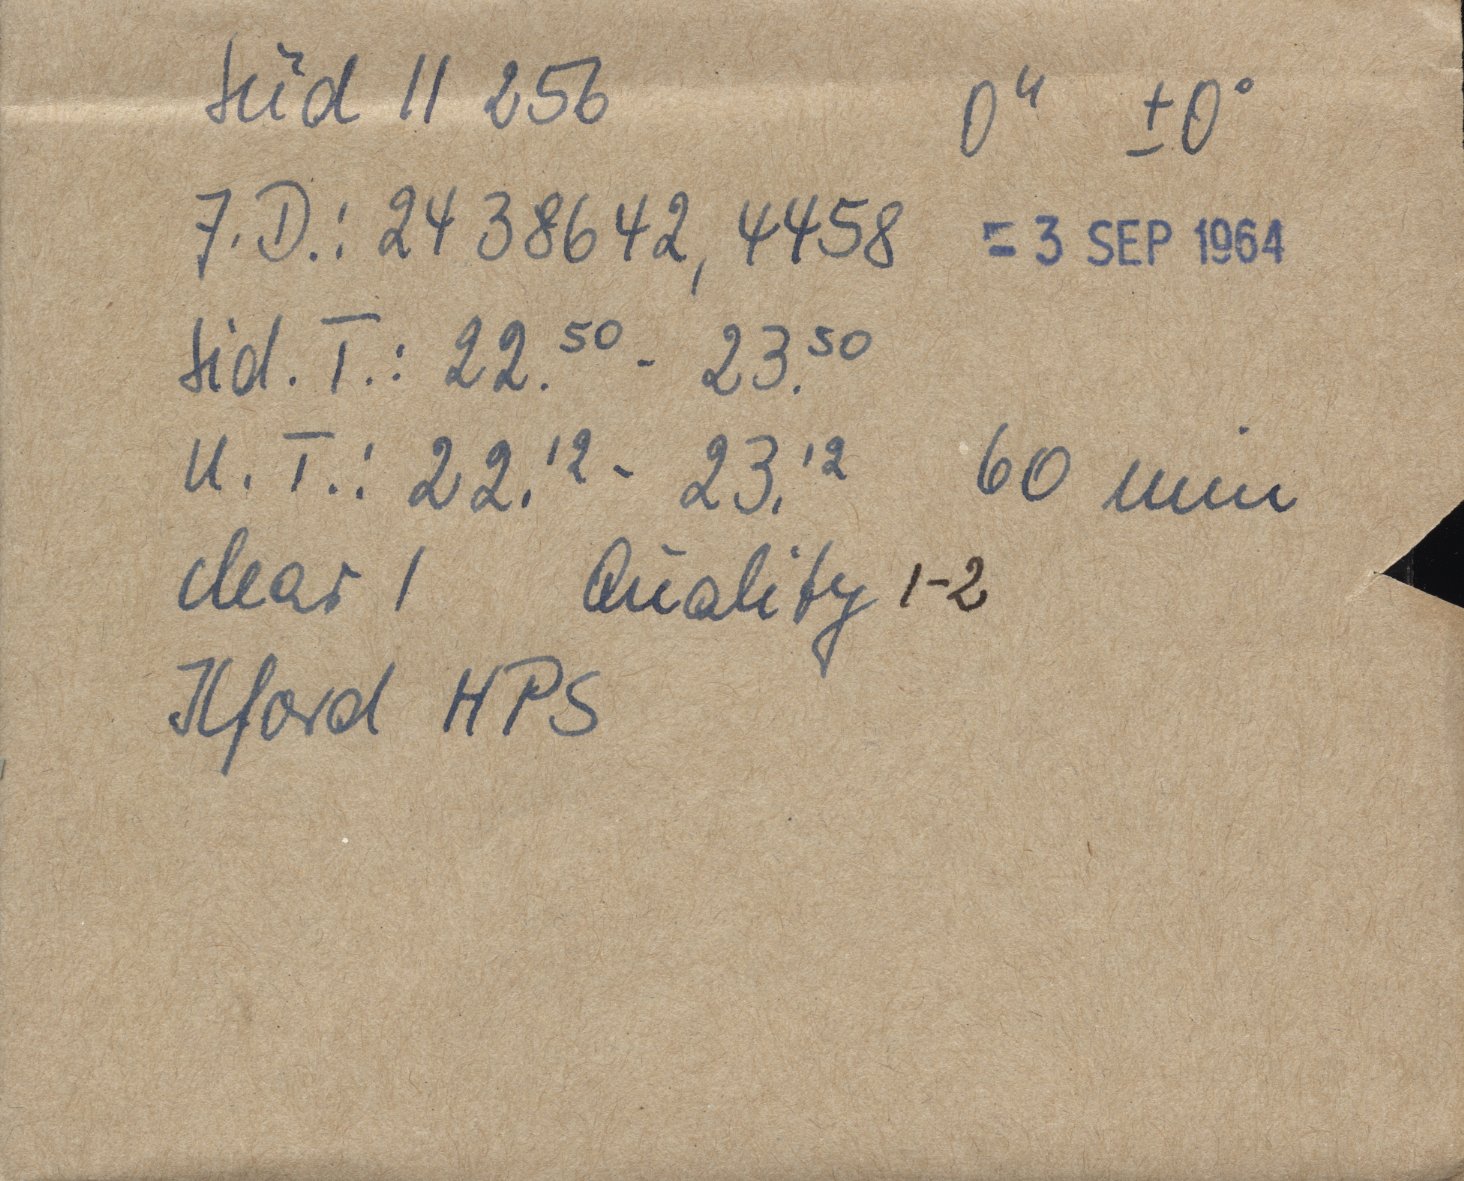 Süd II 256 0ʰ ±0°
J.D.: 2438642,4458 = 3 SEP 1964
Sid. T.: 22.⁵⁰ - 23.⁵⁰
U. T.: 22.¹² - 23.¹² 60 min
clear 1 Quality 1-2
Ilford HPS